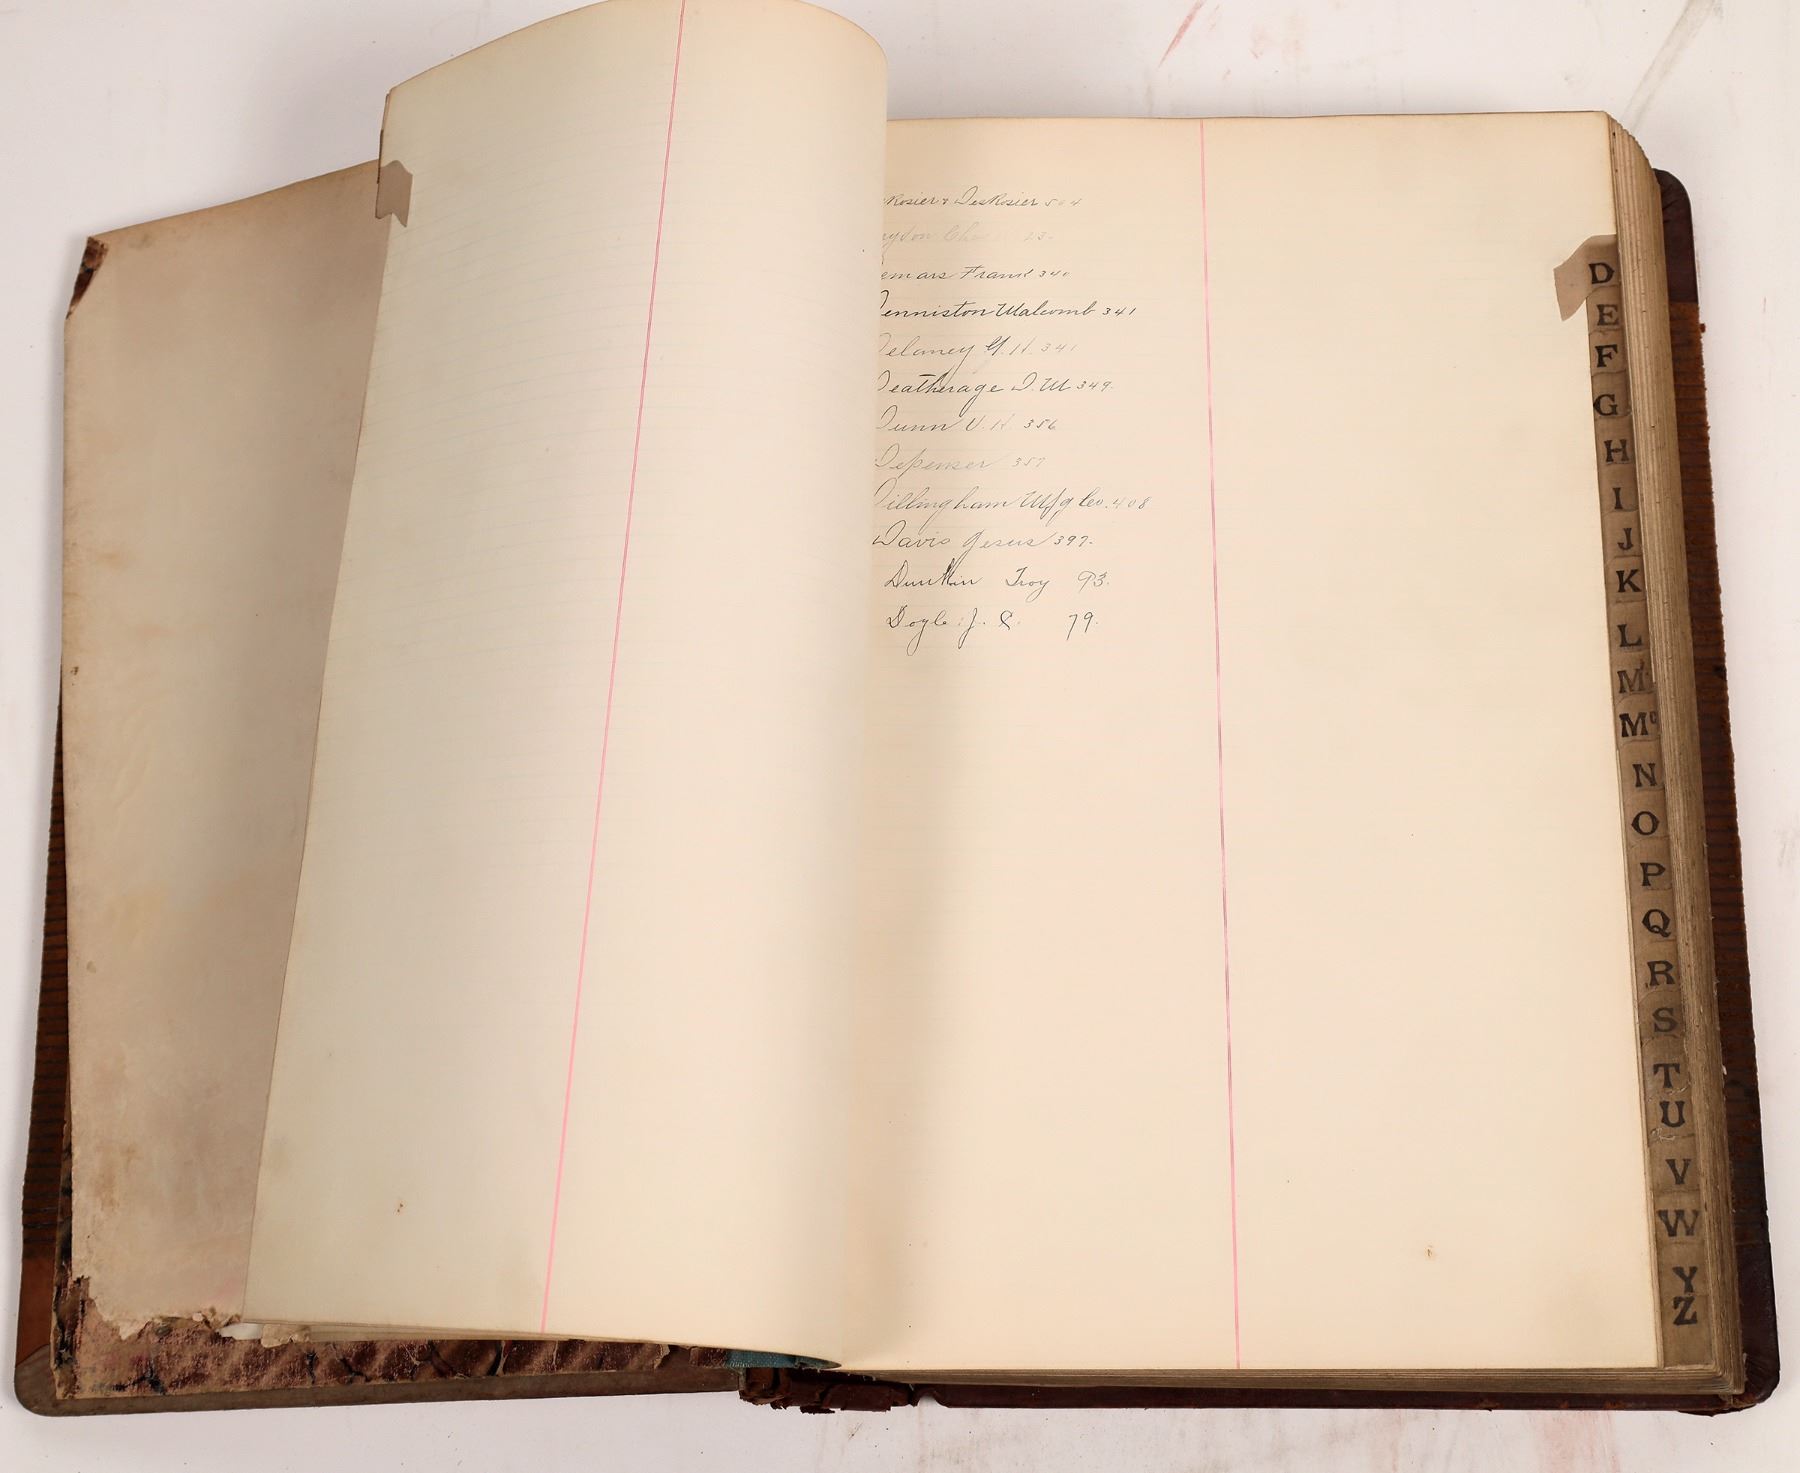 Rosier & DesRosier 504
emars Frank 340
Denniston Malcomb 341
Delaney 341
Deatherage D. M 349.
Dunn V. H. 356
Depenser 357
Dillingham Mfg Co. 408
Davis Jesus 397.
Dunkin Troy 93.
Doyle J. C. 79.
D
E
F
G
H
I
J
K
L
M
Mc
N
O
P
Q
R
S
T
U
V
W
Y
Z